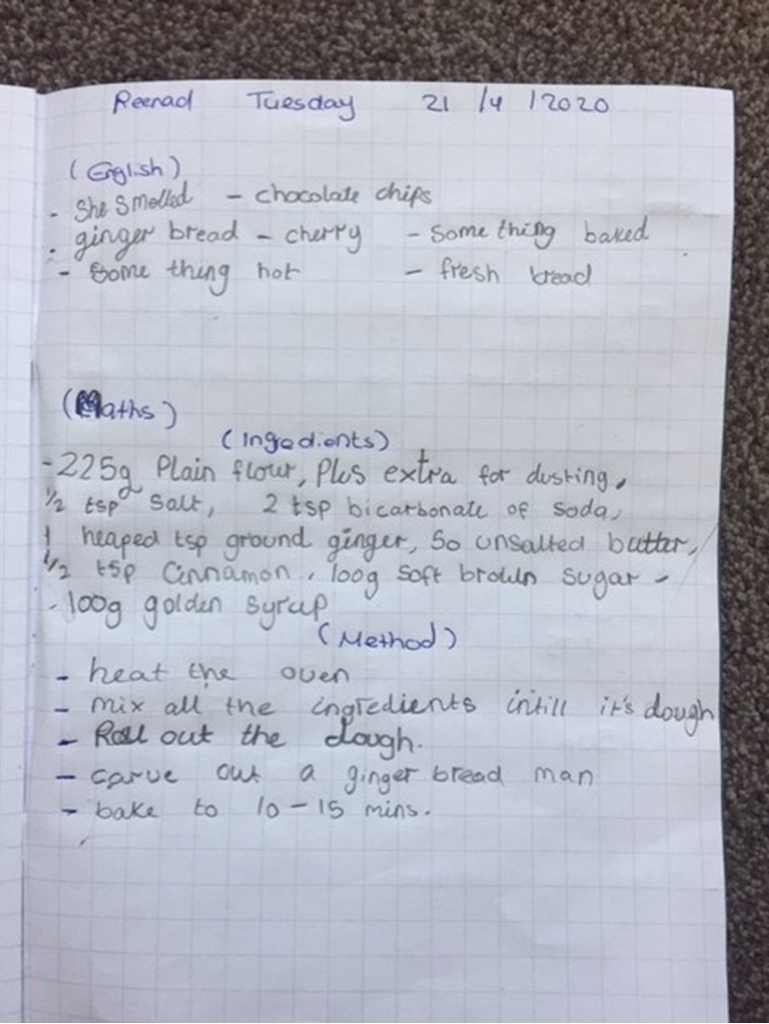 Reenad Tuesday 21/4/2020
(English)
- She smelled - chocolate chips
- ginger bread - cherry - Something baked
- Some thing hot - fresh bread
(Maths)
(Ingedients)
- 225g Plain flour, Plus extra for dusting,
1/2 tsp salt, 2 tsp bicarbonate of soda,
1 heaped tsp ground ginger, 50 unsalted butter,
1/2 tsp Cinnamon, 100g soft brown sugar -
- 100g golden syrup
(Method)
- heat the oven
- mix all the ingredients intill it's dough
- Roll out the dough.
- carve out a ginger bread man
- bake to 10-15 mins.